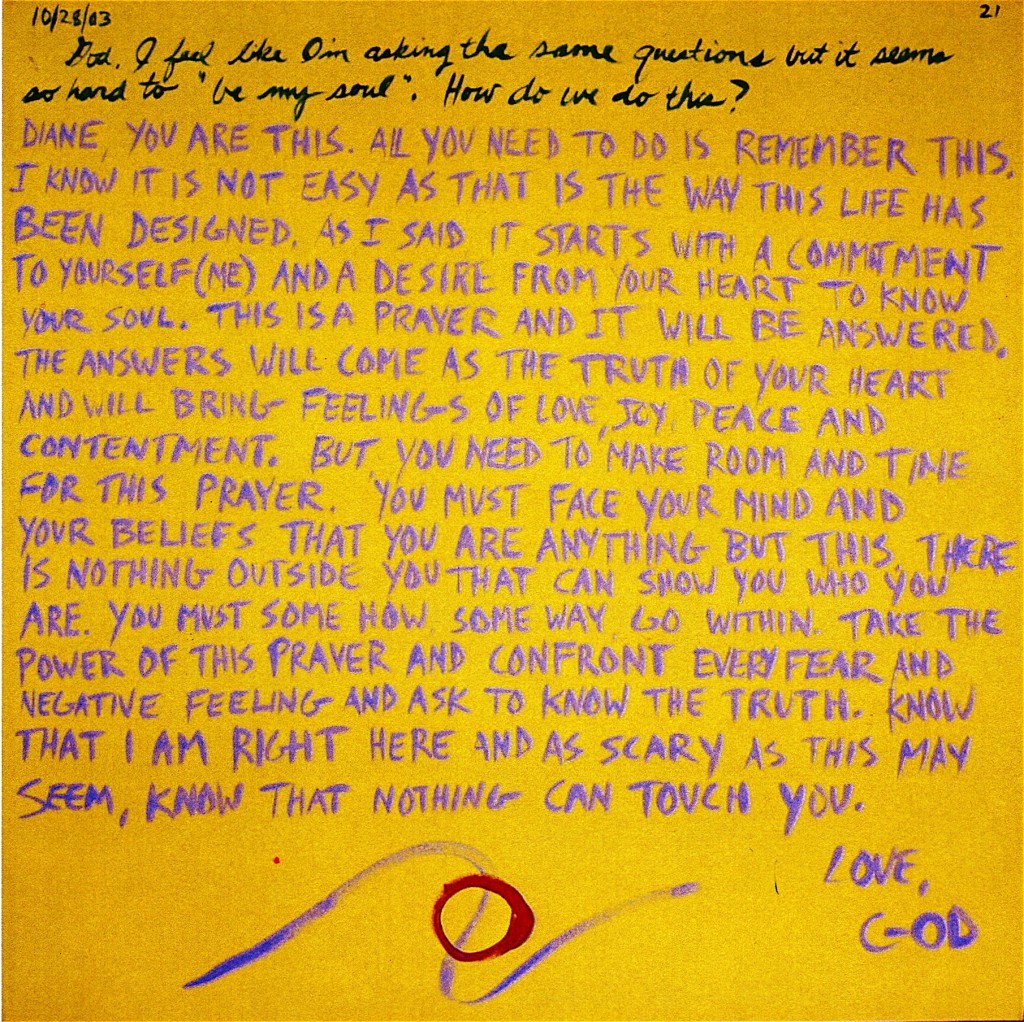 10/28/03
21
God, I feel like I'm asking the same questions but it seems
so hard to "be my soul". How do we do this?
DIANE, YOU ARE THIS. ALL YOU NEED TO DO IS REMEMBER THIS.
I KNOW IT IS NOT EASY AS THAT IS THE WAY THIS LIFE HAS
BEEN DESIGNED. AS I SAID IT STARTS WITH A COMMITMENT
TO YOURSELF (ME) AND A DESIRE FROM YOUR HEART TO KNOW
YOUR SOUL. THIS IS A PRAYER AND IT WILL BE ANSWERED.
THE ANSWERS WILL COME AS THE TRUTH OF YOUR HEART
AND WILL BRING FEELINGS OF LOVE, JOY, PEACE AND
CONTENTMENT. BUT YOU NEED TO MAKE ROOM AND TIME
FOR THIS PRAYER. YOU MUST FACE YOUR MIND AND
YOUR BELIEFS THAT YOU ARE ANYTHING BUT THIS. THERE
IS NOTHING OUTSIDE YOU THAT CAN SHOW YOU WHO YOU
ARE. YOU MUST SOME HOW, SOME WAY, GO WITHIN. TAKE THE
POWER OF THIS PRAYER AND CONFRONT EVERY FEAR AND
NEGATIVE FEELING AND ASK TO KNOW THE TRUTH. KNOW
THAT I AM RIGHT HERE AND AS SCARY AS THIS MAY
SEEM, KNOW THAT NOTHING CAN TOUCH YOU.
LOVE,
GOD